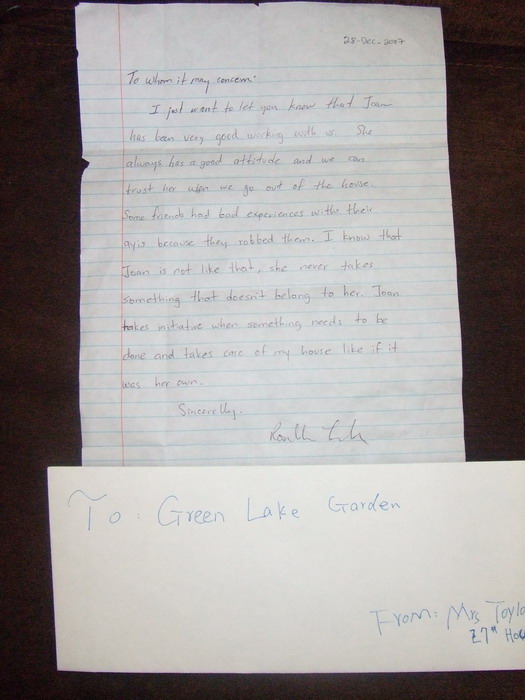 28-Dec-2007
To whom it may concern:
I just want to let you know that Joan
has been very good working with us. She
always has a good attitude and we can
trust her when we go out of the house.
Some friends had bad experiences withe their
ayis because they robbed them. I know that
Joan is not like that, she never takes
something that doesn't belong to her. Joan
takes initiative when something needs to be
done and takes care of my house like if it
was her own.
Sincerelly.
To: Green Lake Garden
From: Mrs Taylo
27# Hou